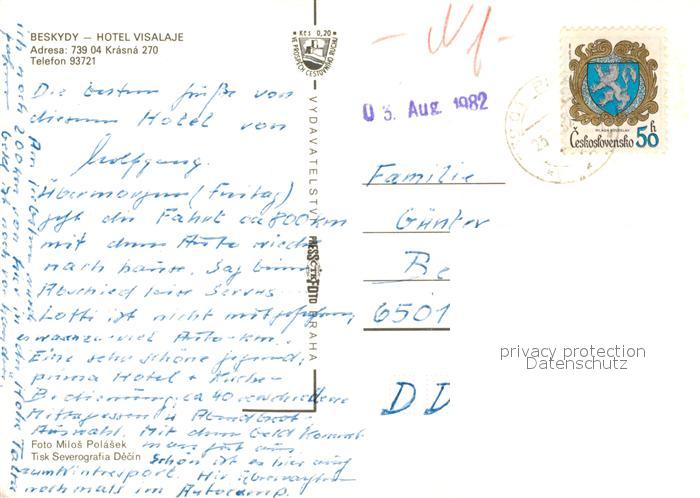 BESKYDY – HOTEL VISALAJE
Adresa: 739 04 Krásná 270
Telefon 93721
Kčs 0,20
VE PROSPĚCH CESTOVNÍHO RUCHU
03. Aug. 1982
MLADÁ BOLESLAV
Československo 50 h
VYDAVATELSTVÍ PRESSFOTO PRAHA
ČTK
Die besten Grüße von
diesem Hotel von
Wolfgang.
Übermorgen (Freitag)
geht die Fahrt ca 800 km
mit dem Auto wieder
nach hause. Sag beim
Abschied leise Servus
Lotti ist nicht mitgefahren,
waren zu viel Auto-km.
Eine sehr schöne Gegend,
prima Hotel + Küche
Bedienung, ca 40 verschiedene
Mittagessen u. Abendbrot-
Auswahl. Mit dem Geld kommt
man gut aus
Schön ist es hier auch
zum Wintersport. Wir übernachten
nochmals im Autocamp.
Am liebsten
ich noch 200 km von hier in die Hohe Tatra
gefahren
Geld ist noch vorhanden.
Familie
Günter
Be
6501
DD
Foto Miloš Polášek
Tisk Severografia Děčín
privacy protection
Datenschutz